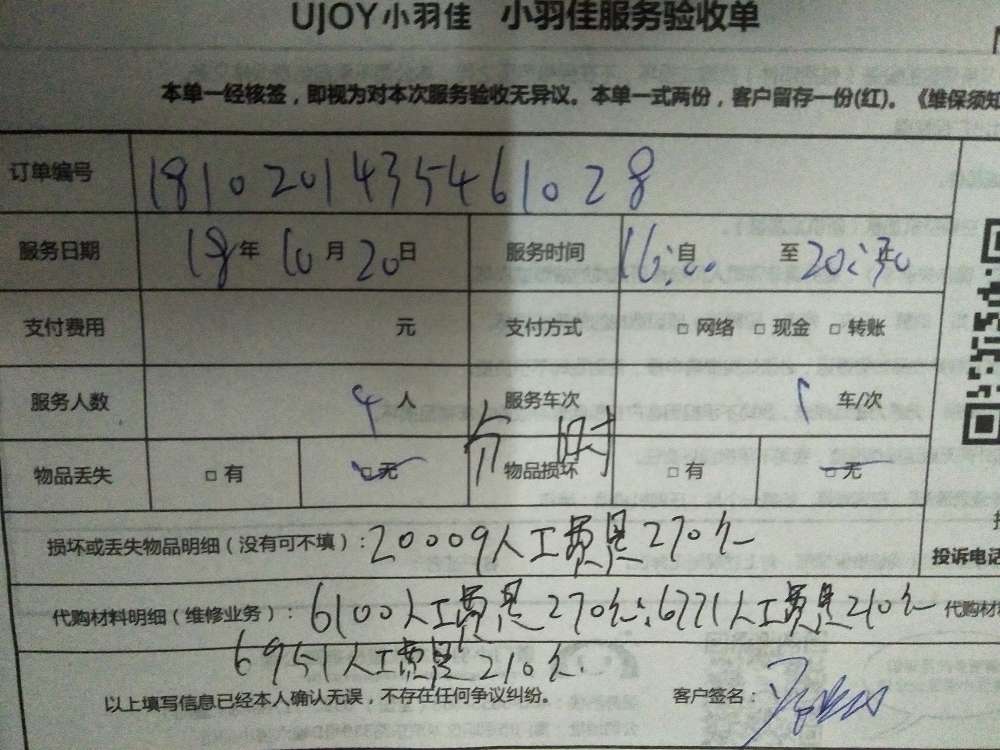 UJOY小羽佳 小羽佳服务验收单
本单一经核签，即视为对本次服务验收无异议。本单一式两份，客户留存一份(红)。《维保须知
订单编号 181020143546 1028
服务日期 18年 10月 20日 服务时间 16:00 自 至 20:30
支付费用 元 支付方式 □ 网络 □ 现金 □ 转账
服务人数 4 人 服务车次 1 车/次
分 时
物品丢失 □ 有 □ 无 物品损坏 □ 有 □ 无
损坏或丢失物品明细（没有可不填）：20009人工费是270分
投诉电话
代购材料明细（维修业务）：6100人工费是270分；6771人工费是210分 代购材
6951人工费是210分.
以上填写信息已经本人确认无误，不存在任何争议纠纷。 客户签名：